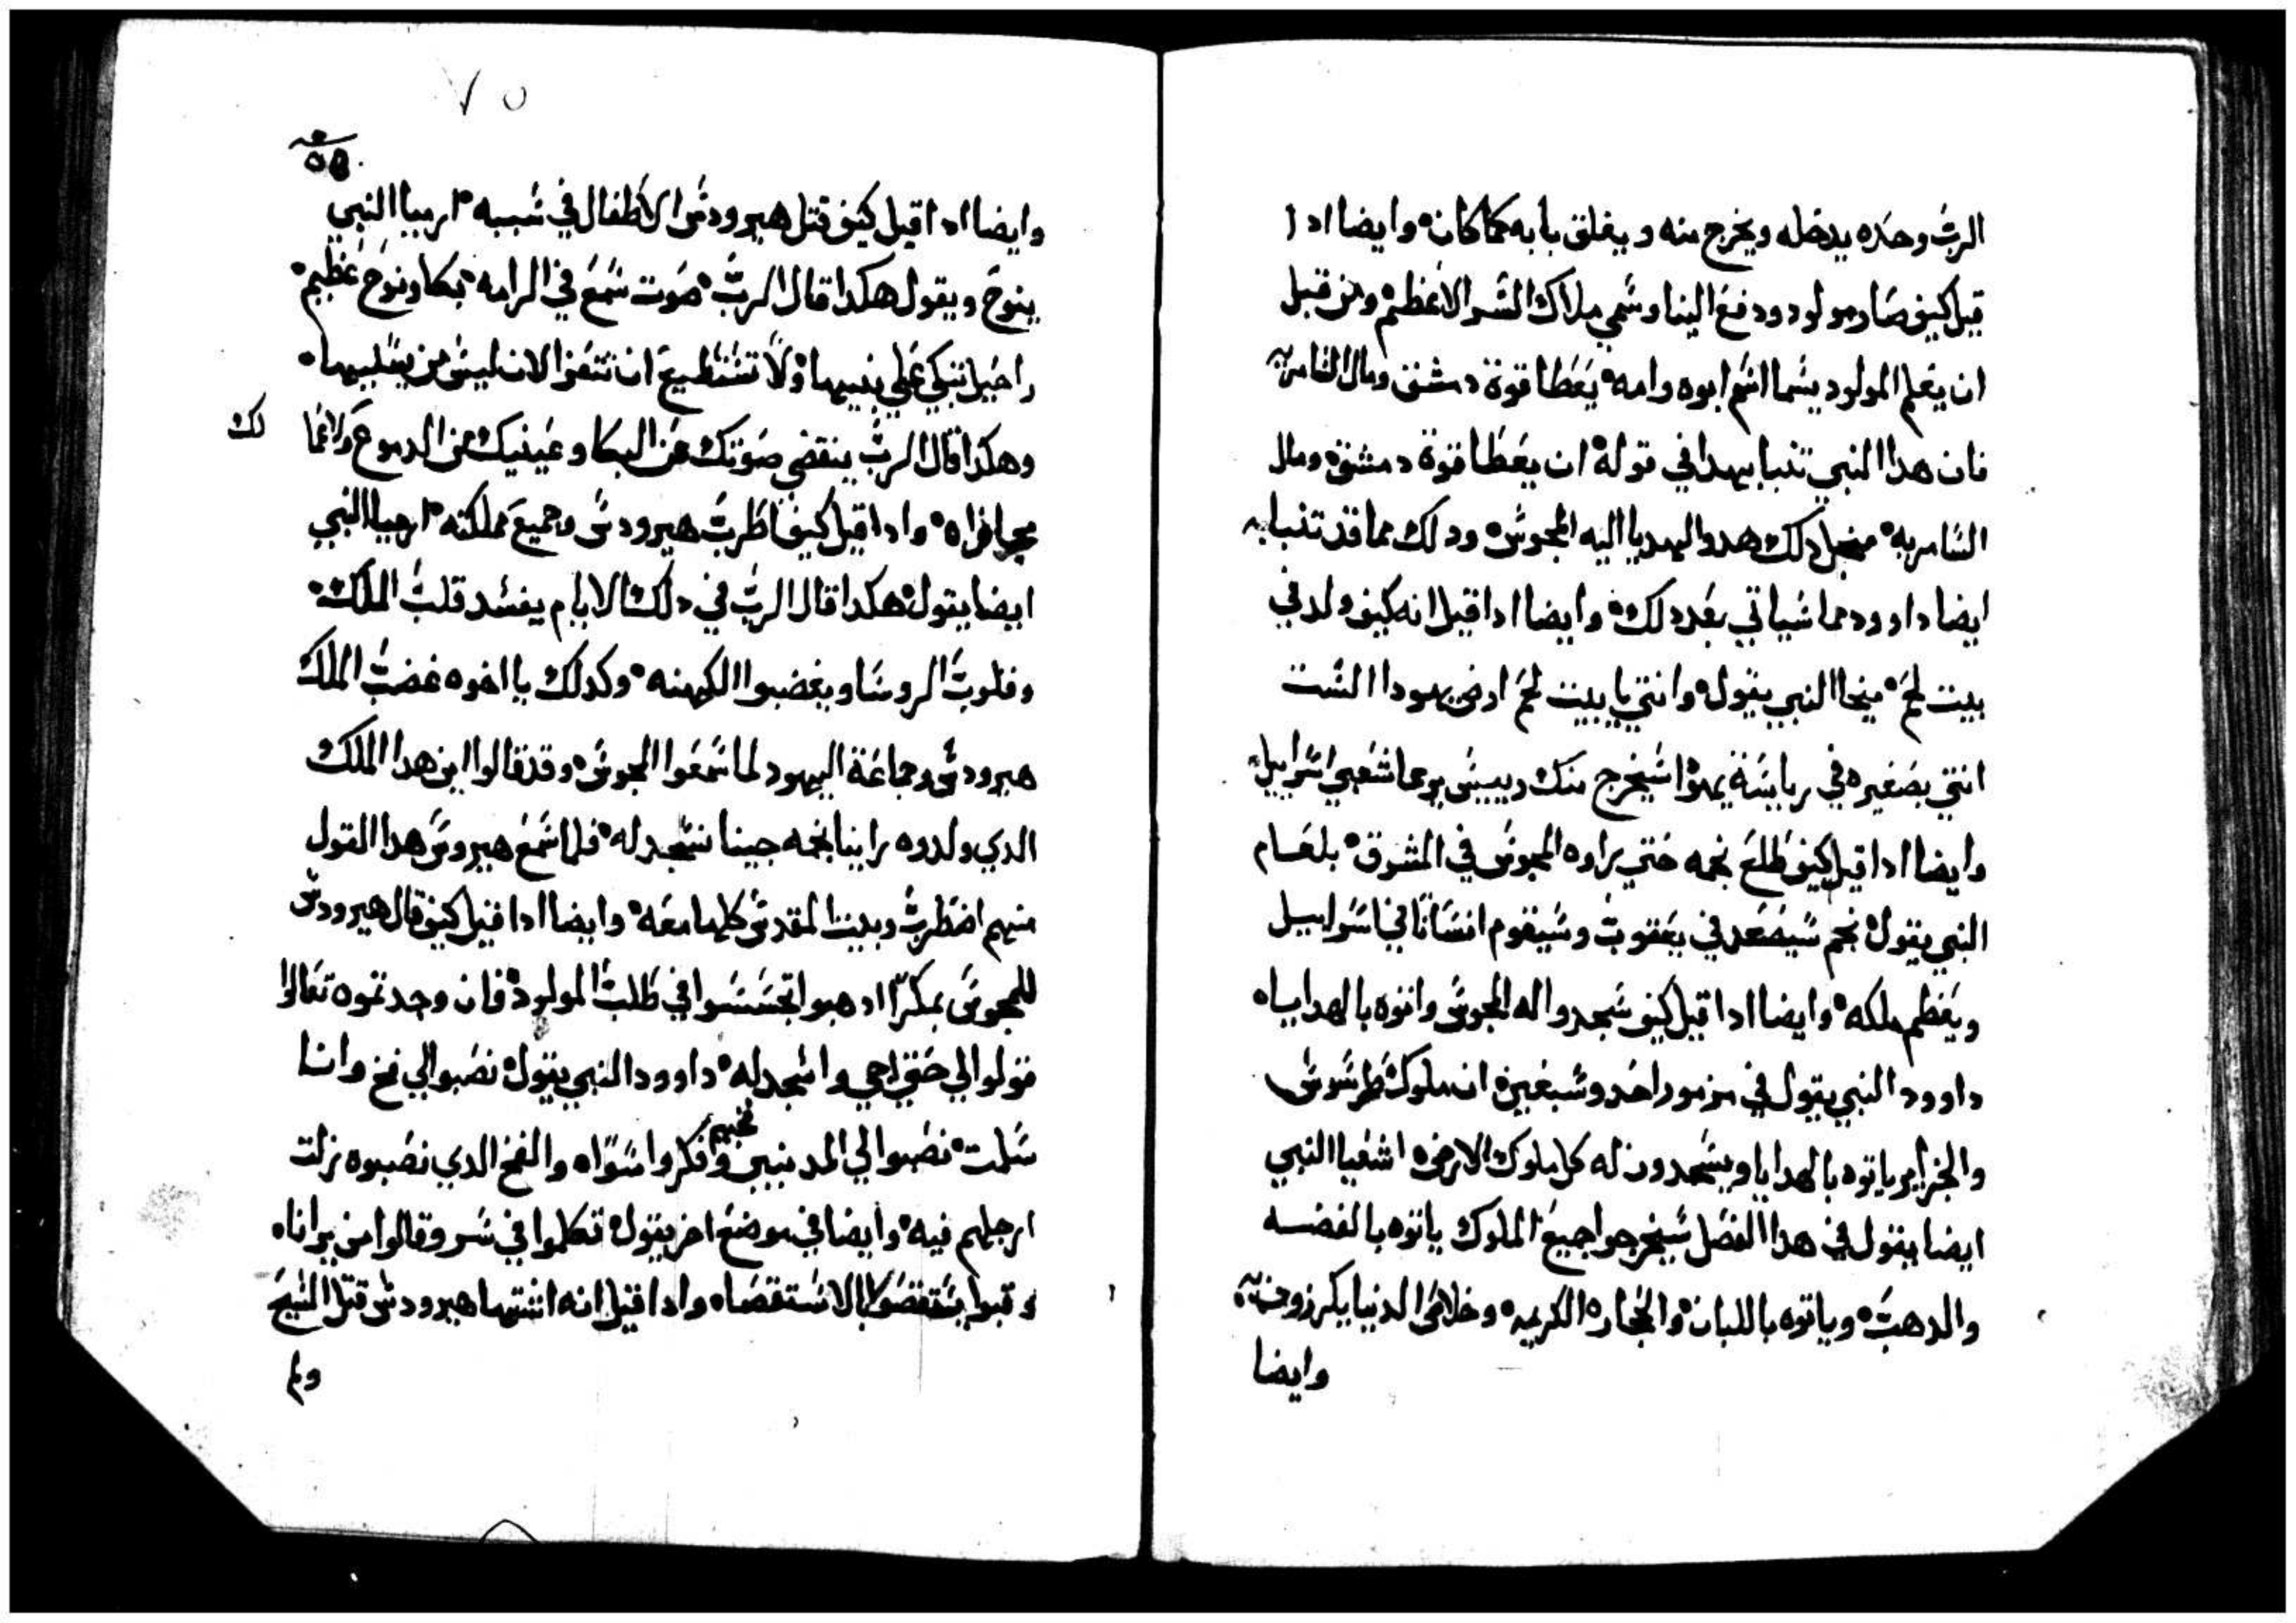 الرب وحده يدخله ويخرج منه ويغلق بابه كما كان وايضا ادا
قيل كيف صار مولود ودفع الينا وسمي ملاك السر الاعظم ومن قبل
ان يعلم المولود يسما اسم ابوه وامه يعطا قوة دمشق ومال السامريه
فان هدا النبي تنبا بهدا في قوله ان يعطا قوة دمشق ومال
السامريه منجل دلك هدوا الهدايا اليه المجوس ودلك مما قد تنبا به
ايضا داوود مما سياتي بعد دلك وايضا ادا قيل انه كيف ولد في
بيت لحم ميخا النبي يقول وانتي يا بيت لحم ارض يهودا الست
انتي بصغيره في رياسة يهودا سيخرج منك رييس يرعا شعبي اسراييل
وايضا ادا قيل كيف طلع نجمه حتي يراوه المجوس في المشرق بلعام
النبي يقول نجم سيصعد في يعقوب وسيقوم انسانا في اسراييل
ويعظم ملكه وايضا ادا قيل كيف سجدوا له المجوس واتوه بالهدايا
داوود النبي يقول في مزمور احد وسبعين ان ملوك طرسوس
والجزاير ياتوه بالهدايا ويسجدون له كل ملوك الارض اشعيا النبي
ايضا يقول في هدا الفصل سيخرجوا جميع الملوك ياتوه بالفضه
والدهب وياتوه باللبان والحجاره الكريمه وخلاص الدنيا يكرزو
وايضا
٧٥
وايضا ادا قيل كيف قتل هيرودس الاطفال في سببه ارميا النبي
ينوح ويقول هكدا قال الرب صوت سمع في الرامه بكا ونوح عظيم
راحيل تبكي علي بنيها ولا تستطيع ان تتعزا لان ليس من يسليها
وهكدا قال الرب ينقضي صوتك عن البكا وعينيك من الدموع ولانما لك
مجازاه وادا قيل كيف اضطرب هيرودس وجميع مملكته ارميا النبي
ايضا يقول هكدا قال الرب في دلك الايام يفسد قلب الملك
وقلوب الروسا ويغضبوا الكهنه وكدلك يا اخوه غضب الملك
هيرودس وجماعة اليهود لما سمعوا المجوس وقد قالوا اين هدا الملك
الدي ولدوه راينا نجمه جينا نسجد له فلما سمع هيرودس هدا القول
منهم اضطرب وبيت المقدس كلها معه وايضا ادا قيل كيف قال هيرودس
للمجوس بمكرا ادهبوا تجسسوا في طلب المولود فان وجدتموه تعالوا
قولوا لي حتي اجي واسجد له داوود النبي يقول نصبوا لي فخ وانا
سلمت نصبوا لي المدنبين فخهم وفكروا سوا والفخ الدي نصبوه زلت
ارجلهم فيه وايضا في موضع اخر يقول تكلموا في سر وقالوا من يرانا
وادا قيل انه اشتها هيرودس قتل المسيح
ولم